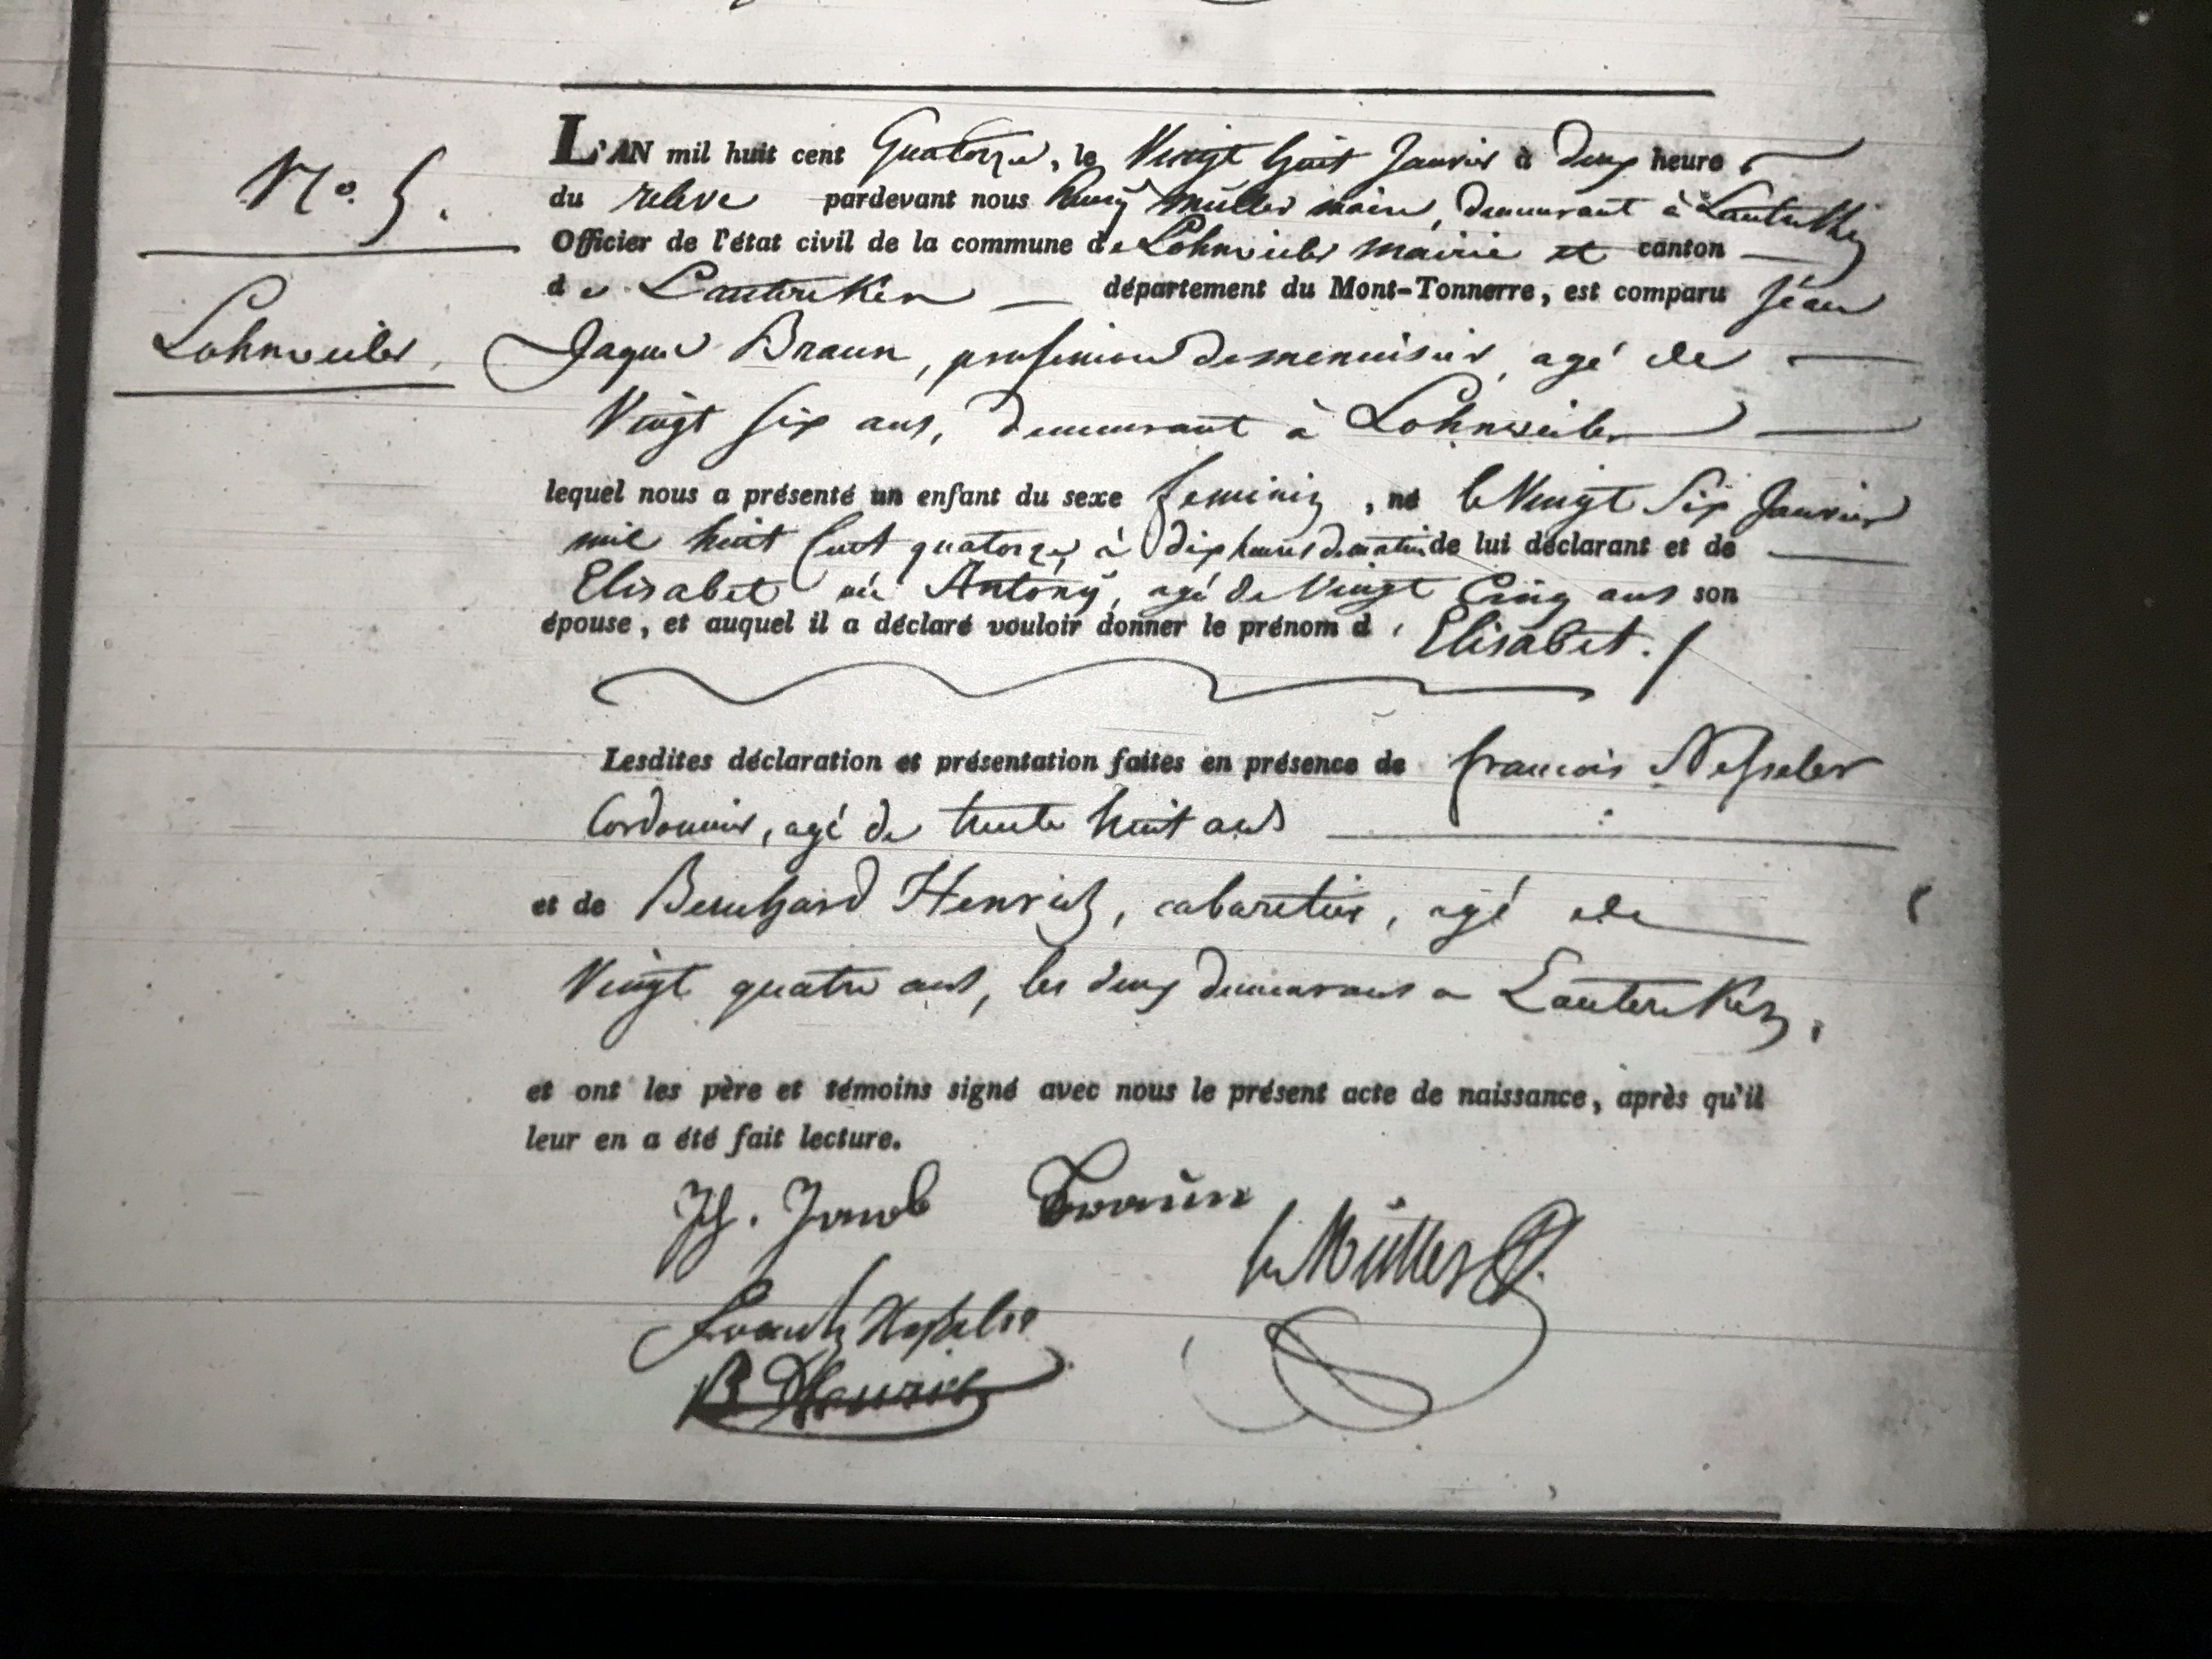 L'AN mil huit cent Quatorze, le Vingt huit Janvier à deux heures
du releve pardevant nous Henry Müller maire, demeurant à Lauterken
Officier de l'état civil de la commune de Lohnweiler mairie et canton
de Lauterken département du Mont-Tonnerre, est comparu Jéan
Jaque Braun, profession de menuisier, agé de
Vingt six ans, demeurant à Lohnweiler
lequel nous a présenté un enfant du sexe feminin, né le Vingt Six Janvier
mil huit Cent quatorze à dix heures du matin de lui déclarant et de
Elisabet née Antony, agé de Vingt Cinq ans son
épouse, et auquel il a déclaré vouloir donner le prénom d' Elisabet./
Lesdites déclaration et présentation faites en présence de francois Nesseler
Cordonnier, agé de trente huit ans
et de Bernhard Henrich, cabaretier, agé de
Vingt quatre ans, les deux demeurans a Lauterken,
et ont les père et témoins signé avec nous le présent acte de naissance, après qu'il
leur en a été fait lecture.
Jh. Jacob Braun
hr Müller
Frantz Neßeler
B Henrich
No. 5.
Lohnweiler,